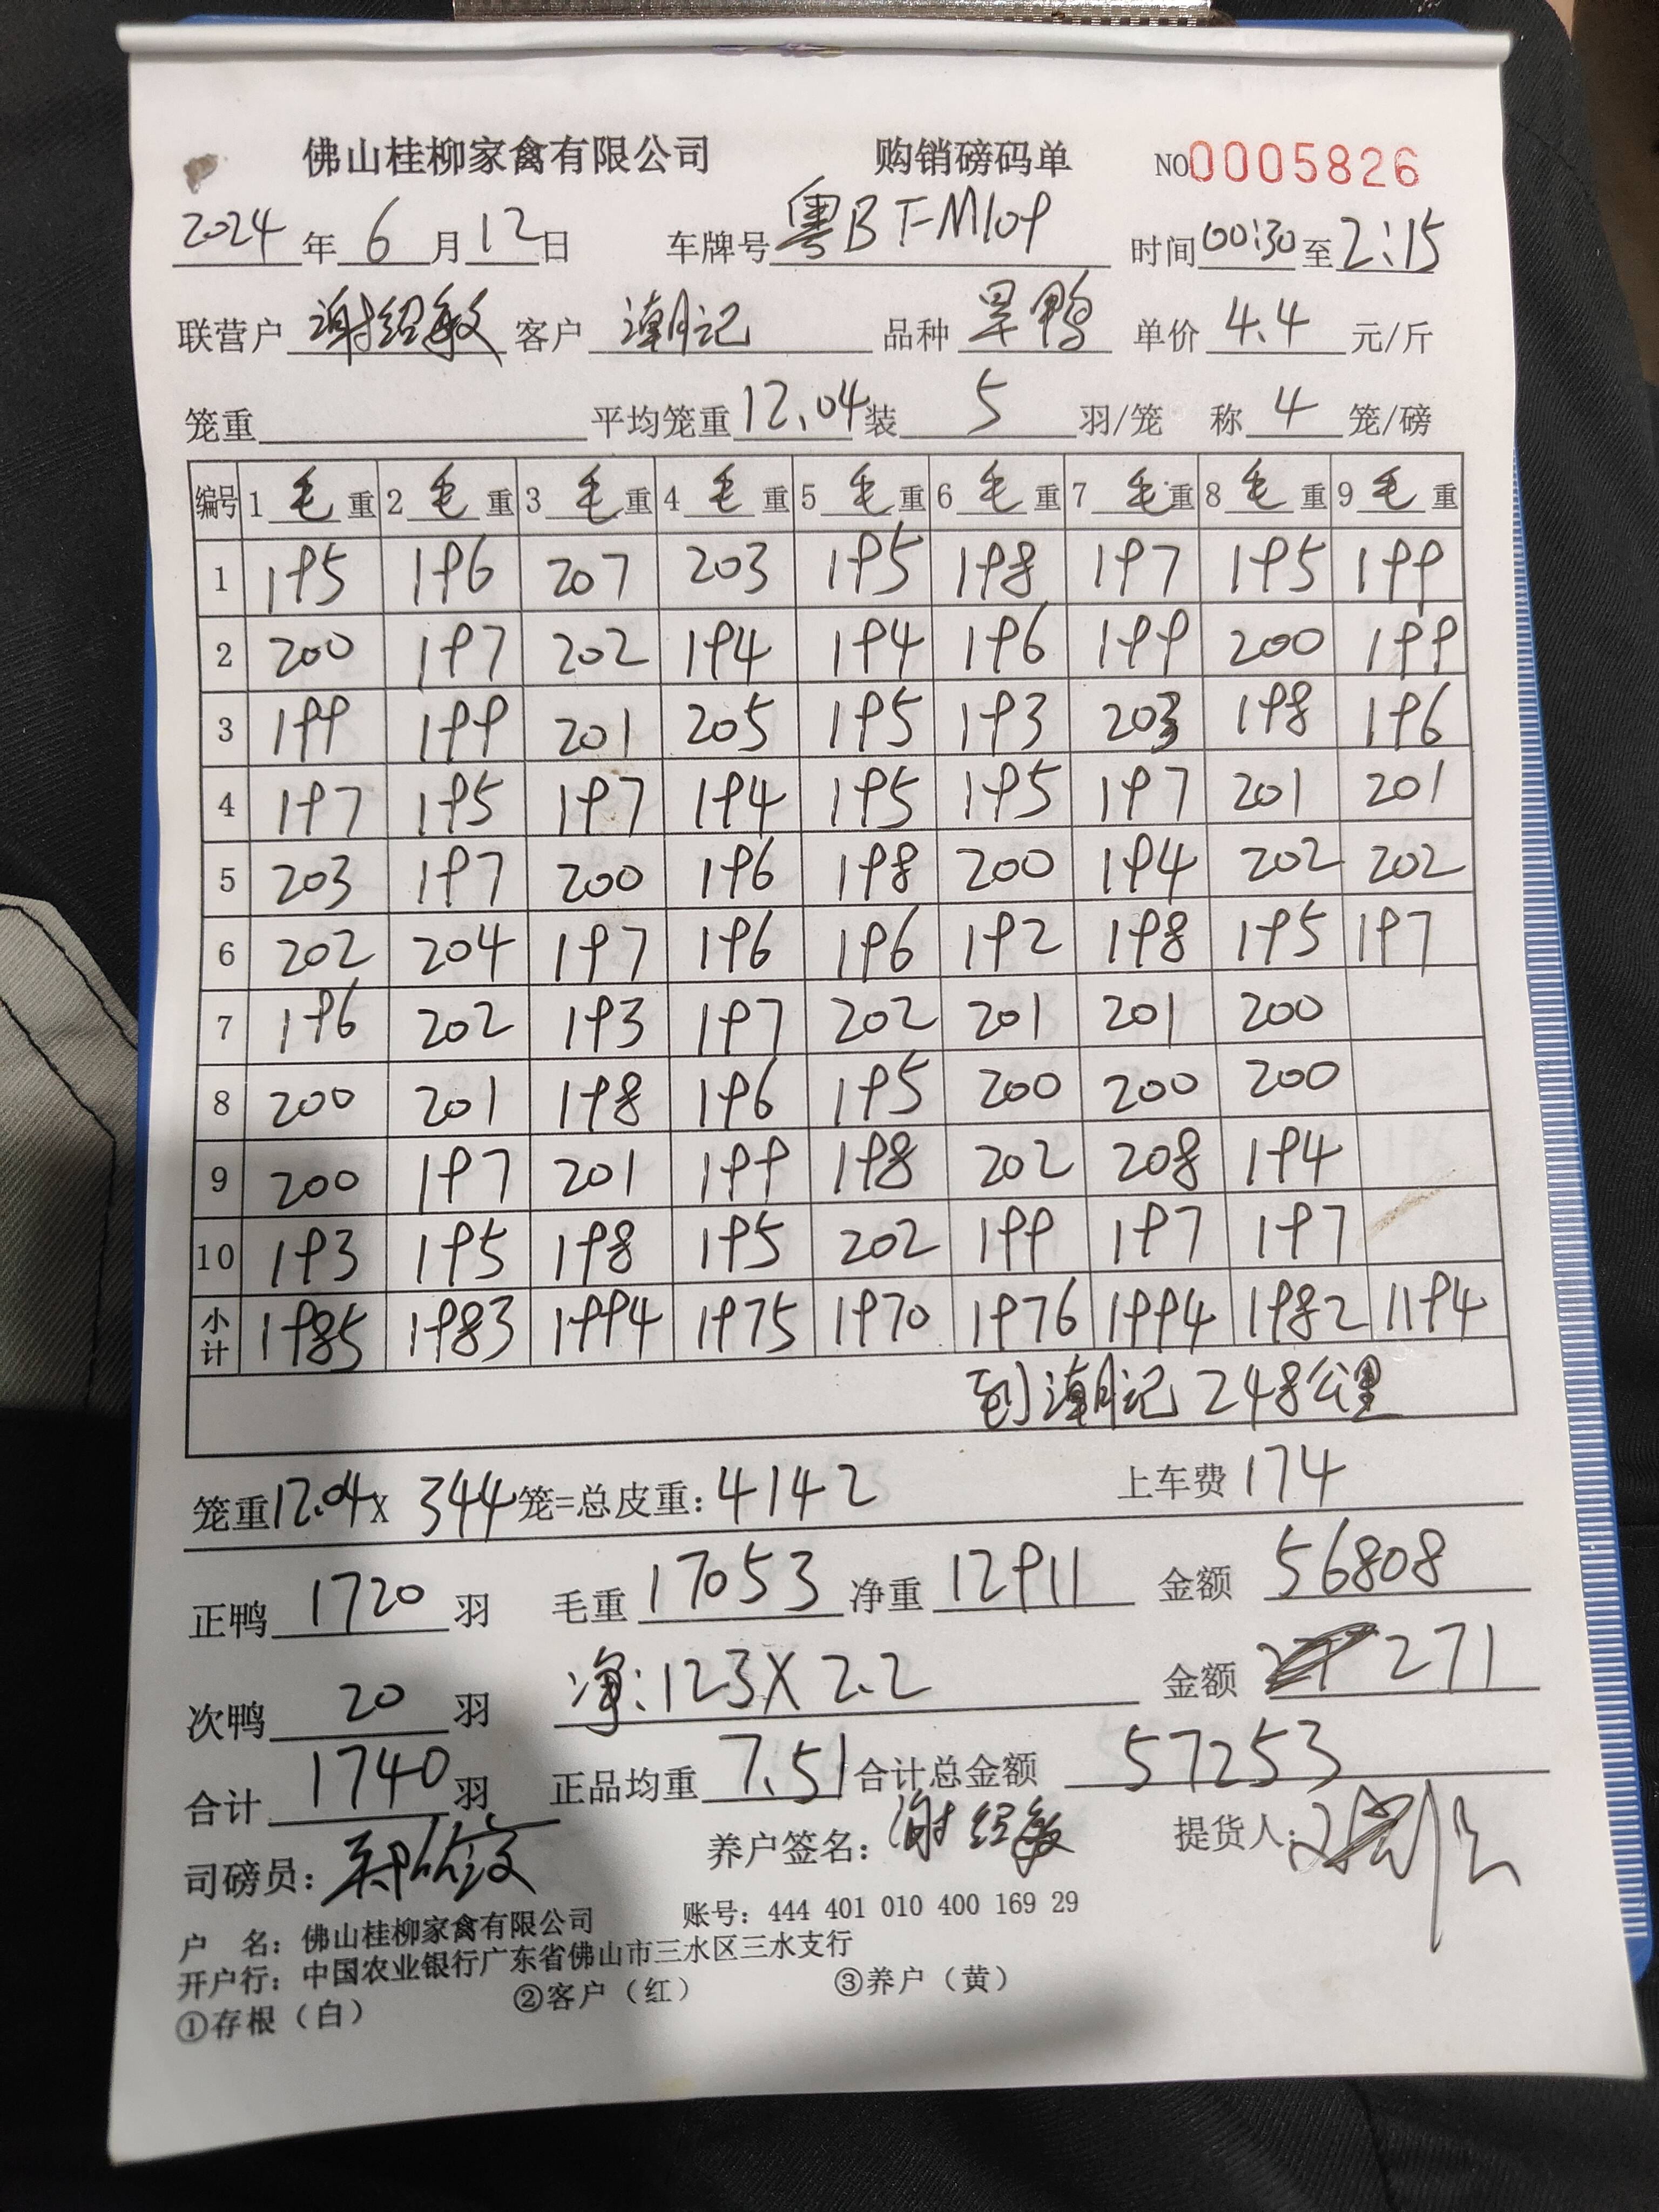 佛山桂柳家禽有限公司 购销磅码单 NO0005826
2024年6月12日 车牌号粤BFM109 时间00:30至2:15
联营户谢绍敏 客户潮记 品种旱鸭 单价4.4元/斤
笼重 平均笼重12.04装5羽/笼 称4笼/磅
编号 1毛重 2毛重 3毛重 4毛重 5毛重 6毛重 7毛重 8毛重 9毛重
1 195 196 207 203 195 198 197 195 199
2 200 197 202 194 194 196 199 200 199
3 199 199 201 205 195 193 203 198 196
4 197 195 197 194 195 195 197 201 201
5 203 197 200 196 198 200 194 202 202
6 202 204 197 196 196 192 198 195 197
7 196 202 193 197 202 201 201 200
8 200 201 198 196 195 200 200 200
9 200 197 201 199 198 202 208 194
10 193 195 198 195 202 199 197 197
小计 1985 1983 1994 1975 1970 1976 1994 1982 1194
到潮记248公里
笼重12.04X344笼=总皮重:4142 上车费174
正鸭1720羽 毛重17053净重12911 金额56808
次鸭20羽 净:123X2.2 金额271
合计1740羽 正品均重7.51合计总金额57253
司磅员: 养户签名:谢绍敏 提货人:
户 名:佛山桂柳家禽有限公司 账号:444 401 010 400 169 29
开户行:中国农业银行广东省佛山市三水区三水支行
①存根(白) ②客户(红) ③养户(黄)